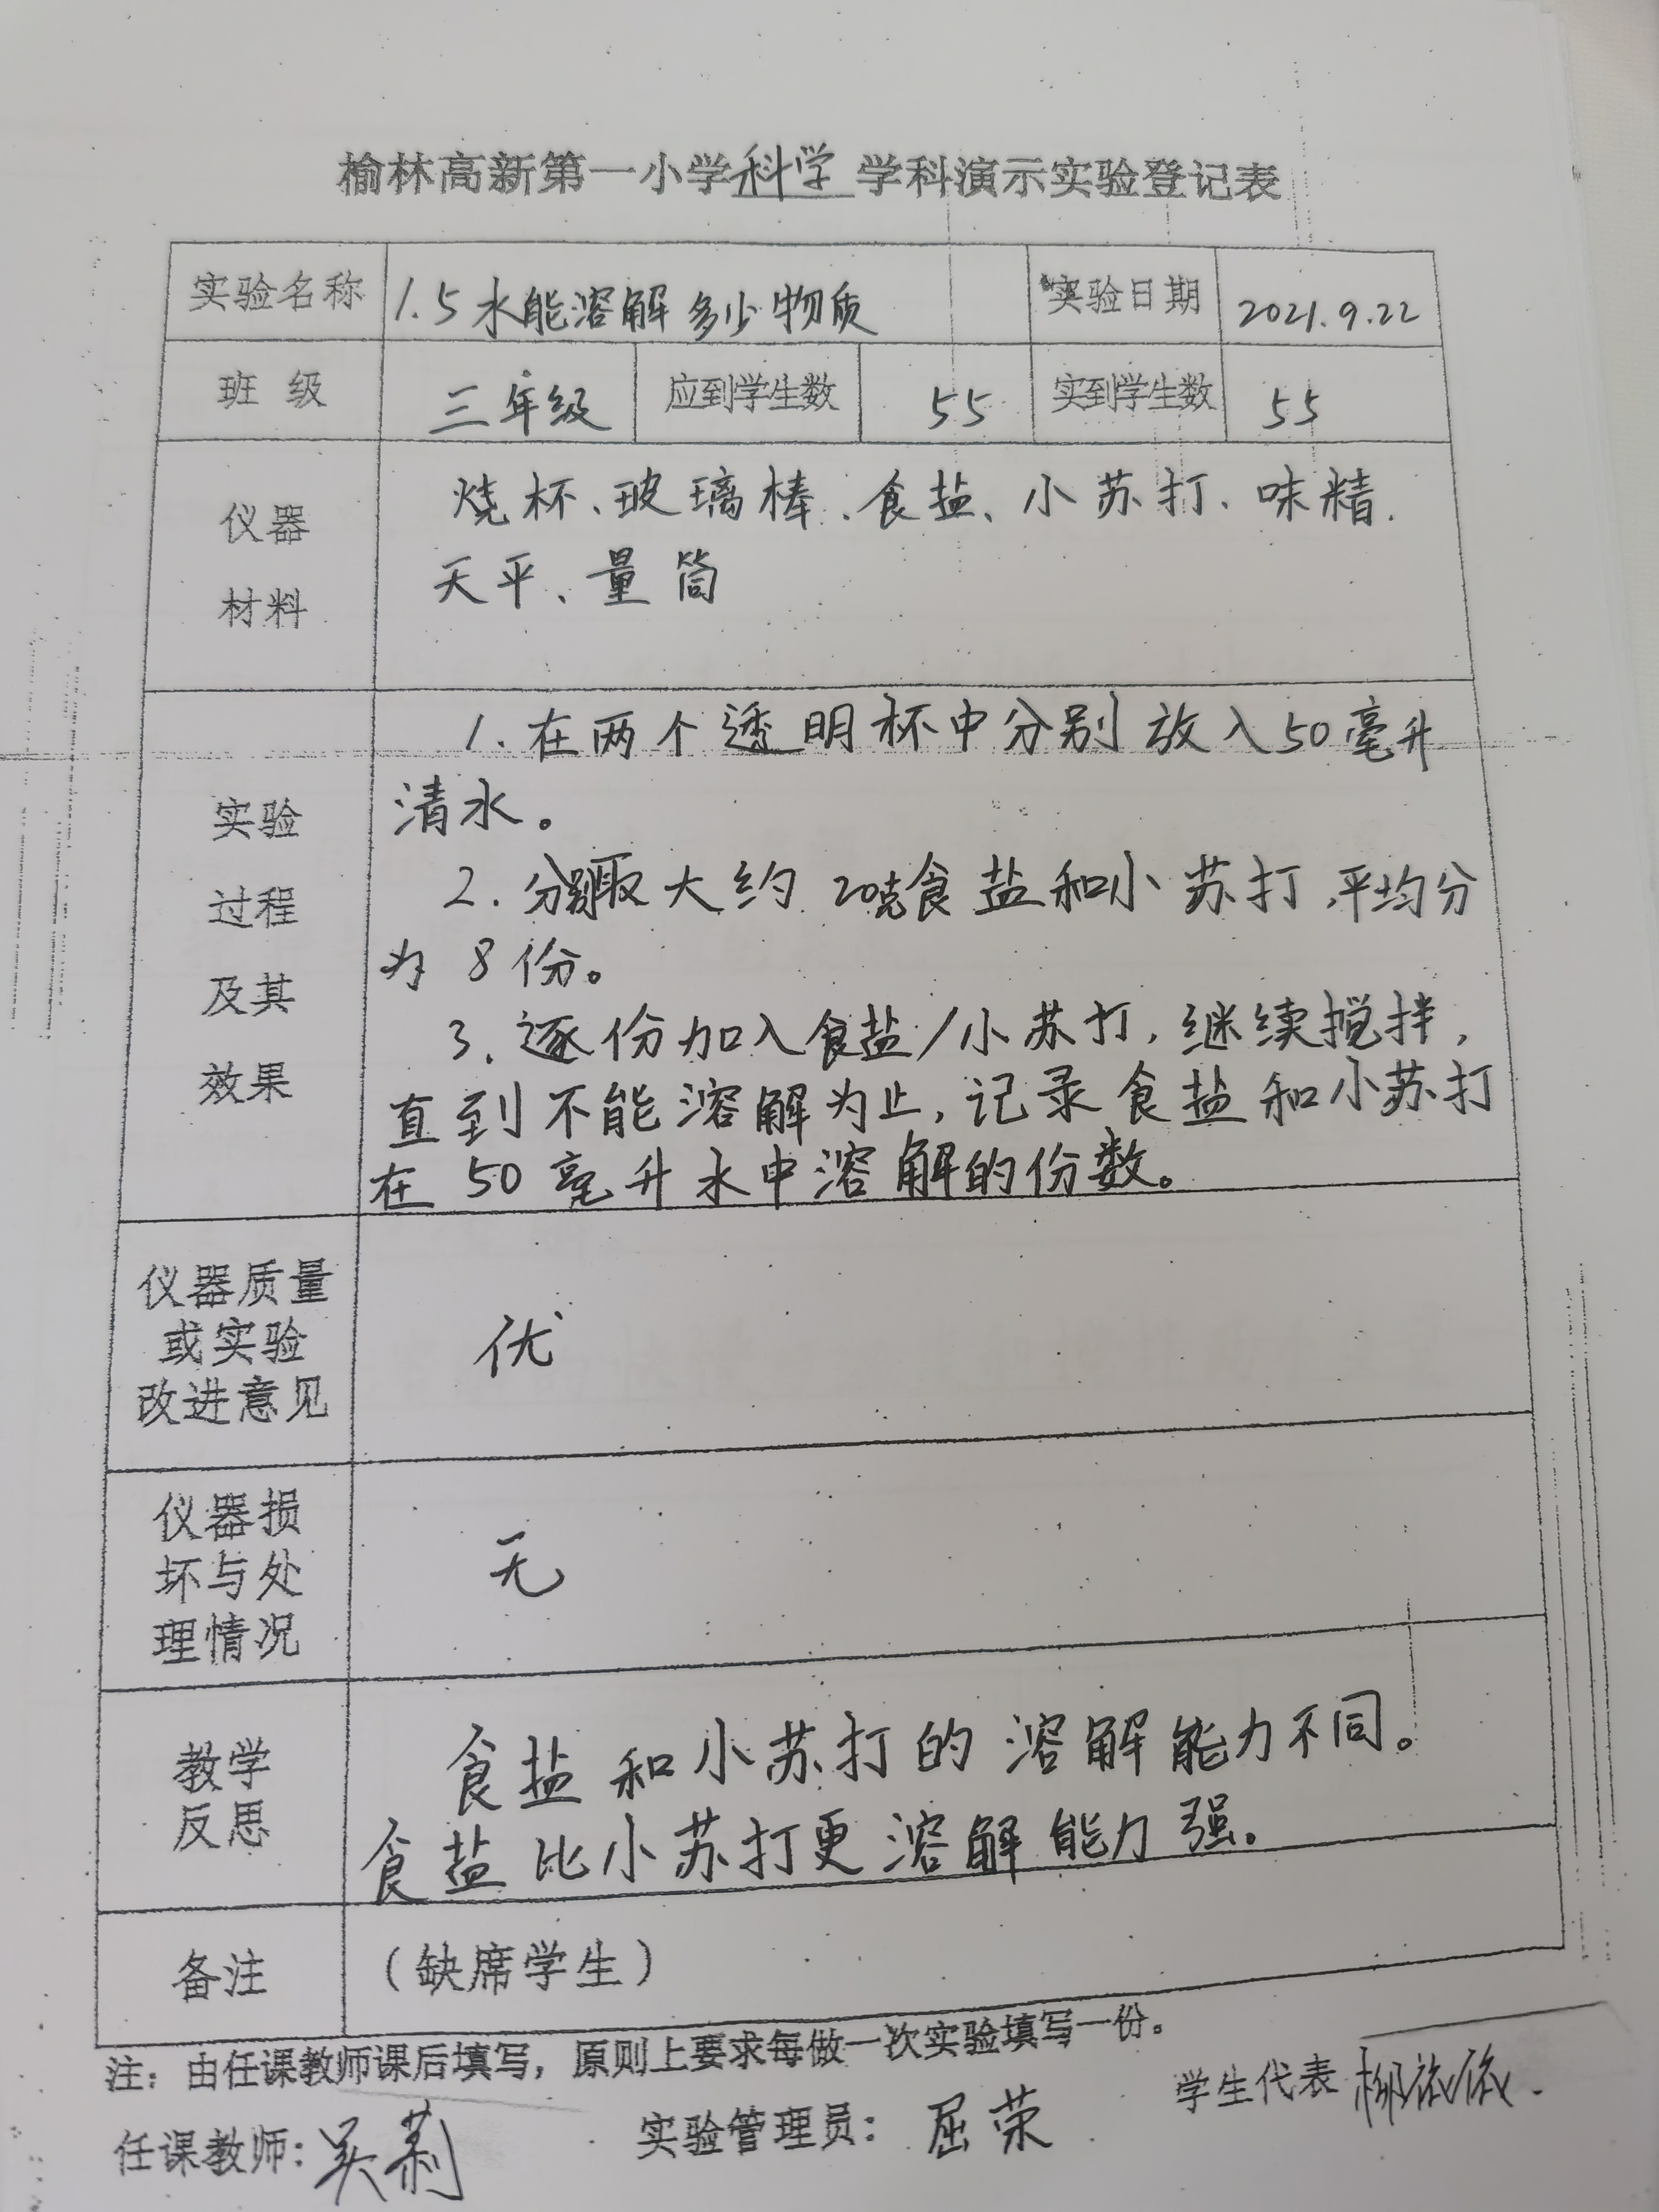 榆林高新第一小学科学学科演示实验登记表
实验名称 1.5水能溶解多少物质 实验日期 2021.9.22
班级 三年级 应到学生数 55 实到学生数 55
仪器
材料
烧杯、玻璃棒、食盐、小苏打、味精、
天平、量筒
实验
过程
及其
效果
1.在两个透明杯中分别放入50毫升
清水。
2.分别取大约20克食盐和小苏打,平均分
为8份。
3.逐份加入食盐/小苏打,继续搅拌,
直到不能溶解为止,记录食盐和小苏打
在50毫升水中溶解的份数。
仪器质量
或实验
改进意见
优
仪器损
坏与处
理情况
无
教学
反思
食盐和小苏打的溶解能力不同。
食盐比小苏打更溶解能力强。
备注 (缺席学生)
注:由任课教师课后填写,原则上要求每做一次实验填写一份。
任课教师:吴莉 实验管理员:屈荣 学生代表 柳依依.